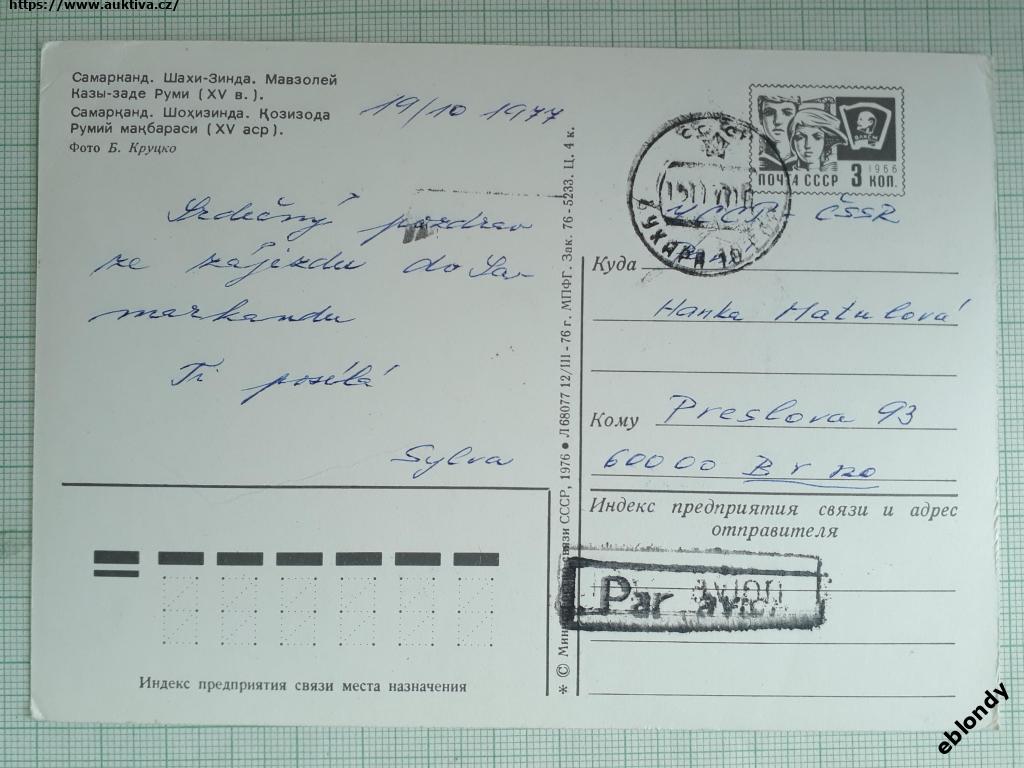 https://www.auktiva.cz/
Самарканд. Шахи-Зинда. Мавзолей
Казы-заде Руми (XV в.).
Самарқанд. Шоҳизинда. Қозизода
Румий мақбараси (XV аср).
Фото Б. Круцко
19/10 1977
Srdečný pozdrav
ze zájezdu do Sa-
markandu
Ti posílá
Sylva
Индекс предприятия связи места назначения
* © Министерство связи СССР, 1976 ● Л 68077 12/III-76 г. МПФГ. Зак. 76-5233. Ц. 4 к.
ПОЧТА СССР 3 КОП.
1966
ВЛКСМ
СССР
БУХАРА 10
ČSSR
Куда
Hanka Matulová
Кому Preslova 93
60000 Brno
Индекс предприятия связи и адрес
отправителя
Par avion
eblondy